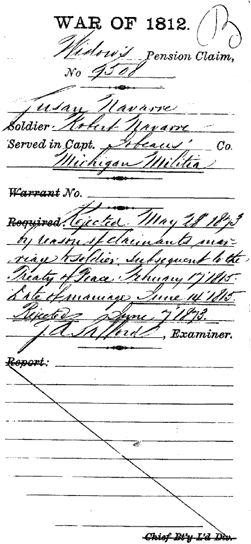 WAR OF 1812.
B
Widow's Pension Claim,
No 9508
Susan Navarre
Soldier Robert Navarre
Served in Capt. Co.
Michigan Militia
Warrant No.
Required. Rejected May 28 1873
by reason of claimants mar-
riage to soldier, subsequent to the
Treaty of Peace February 17 1815.
Date of marriage June 14 1815.
Rejected June 7 1873.
, Examiner.
Report:
Chief B't'y L'd Div.